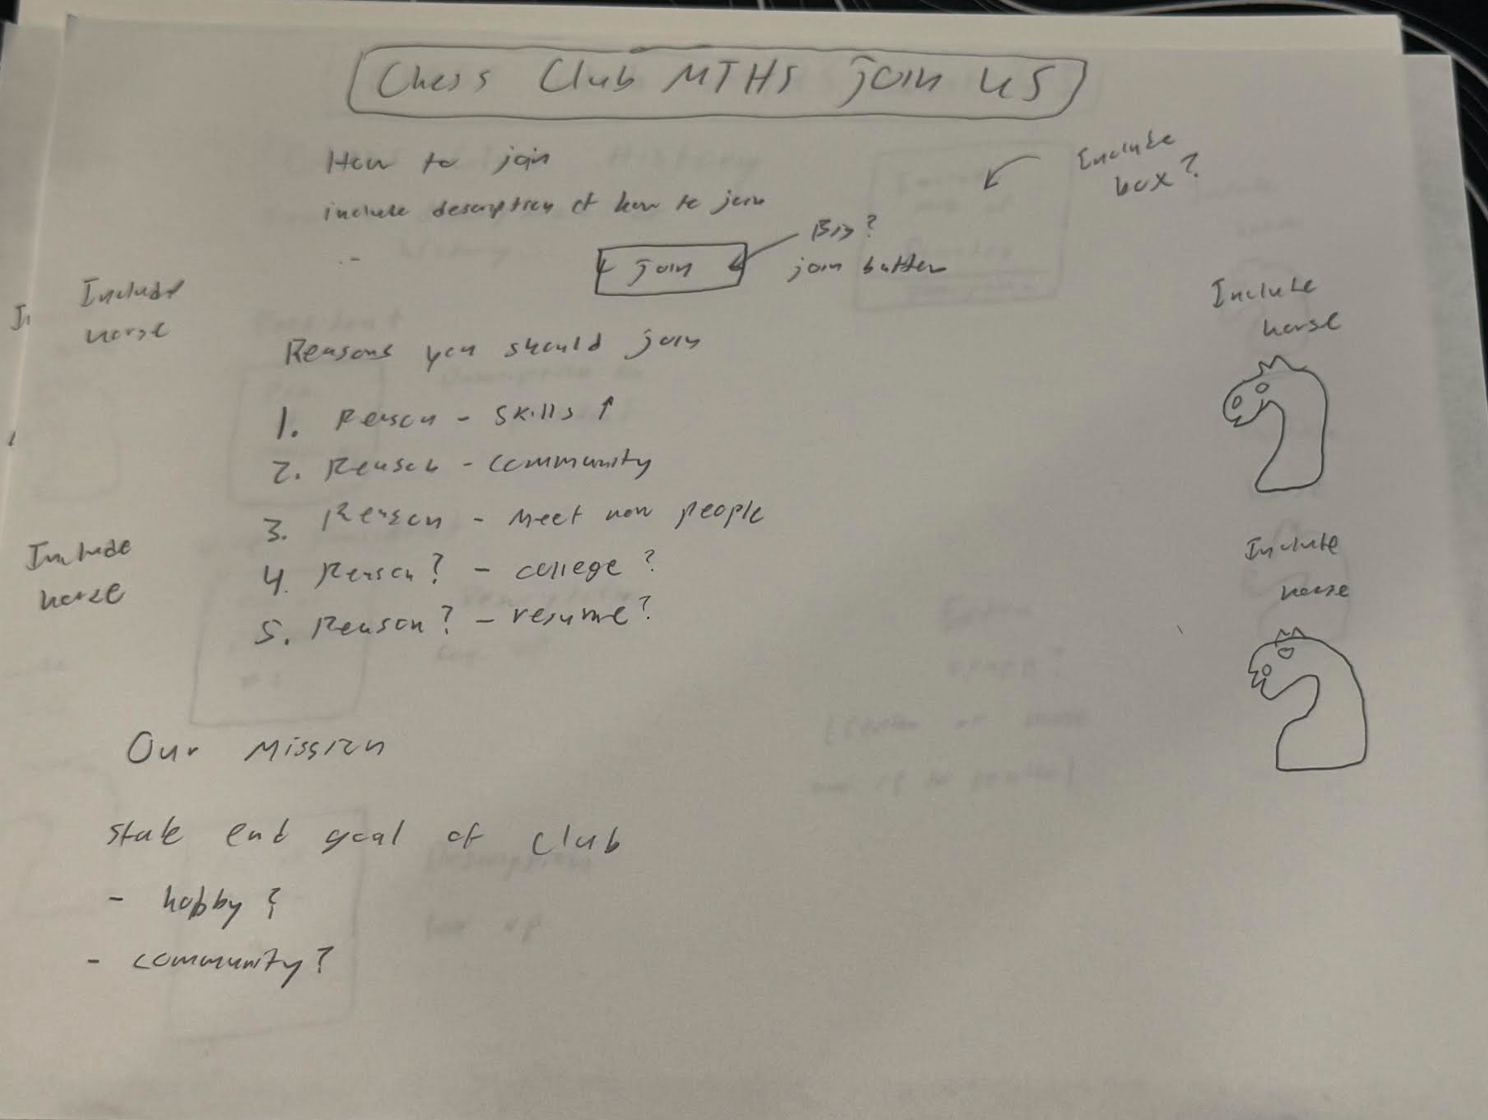 Chess Club MTHS join us
How to join
include description of how to join
Include
box?
Big?
join
join button
Include
horse
Include
horse
Reasons you should join
1. Reason - skills ↑
2. Reason - community
3. Reason - Meet new people
4. Reason? - college?
5. Reason? - resume?
Include
horse
Include
horse
Our Mission
State end goal of club
- hobby?
- community?